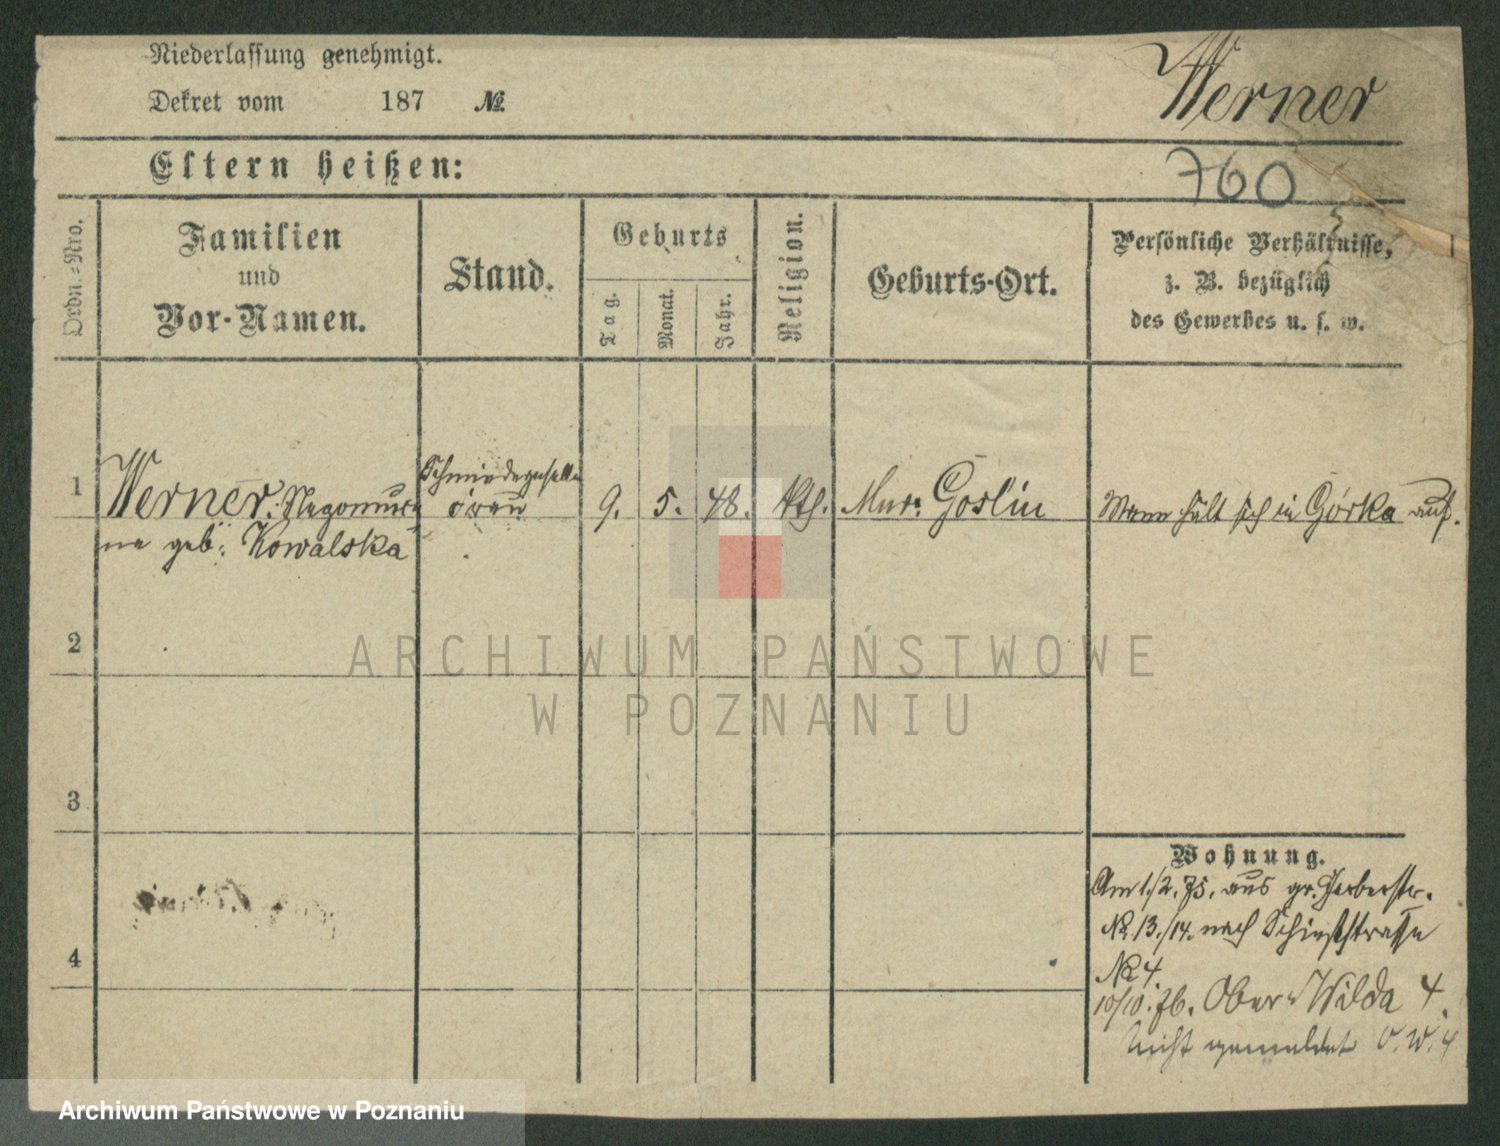 Niederlassung genehmigt.
Werner
Dekret vom 187 №
Eltern heißen:
760
Ordn.-Nro.
Familien
und
Vor-Namen.
Stand.
Geburts
Tag.
Monat.
Jahr.
Religion.
Geburts-Ort.
Persönliche Verhältnisse,
z. B. bezüglich
des Gewerbes u. s. w.
1 Werner, Nepomuce- Schmiedegesellen 9. 5. 48. kth. Mur. Goslin Mann hält sich in Górka auf.
na geb: Kowalska
2
3
4
Wohnung.
Am 1./2. 75. aus gr. Gerberstr.
№ 13./14. nach Schießstrasse
№ 4.
10/10. 76. Ober Wilda 4.
Nicht gemeldet O. W. 4
ARCHIWUM PAŃSTWOWE
W POZNANIU
Archiwum Państwowe w Poznaniu